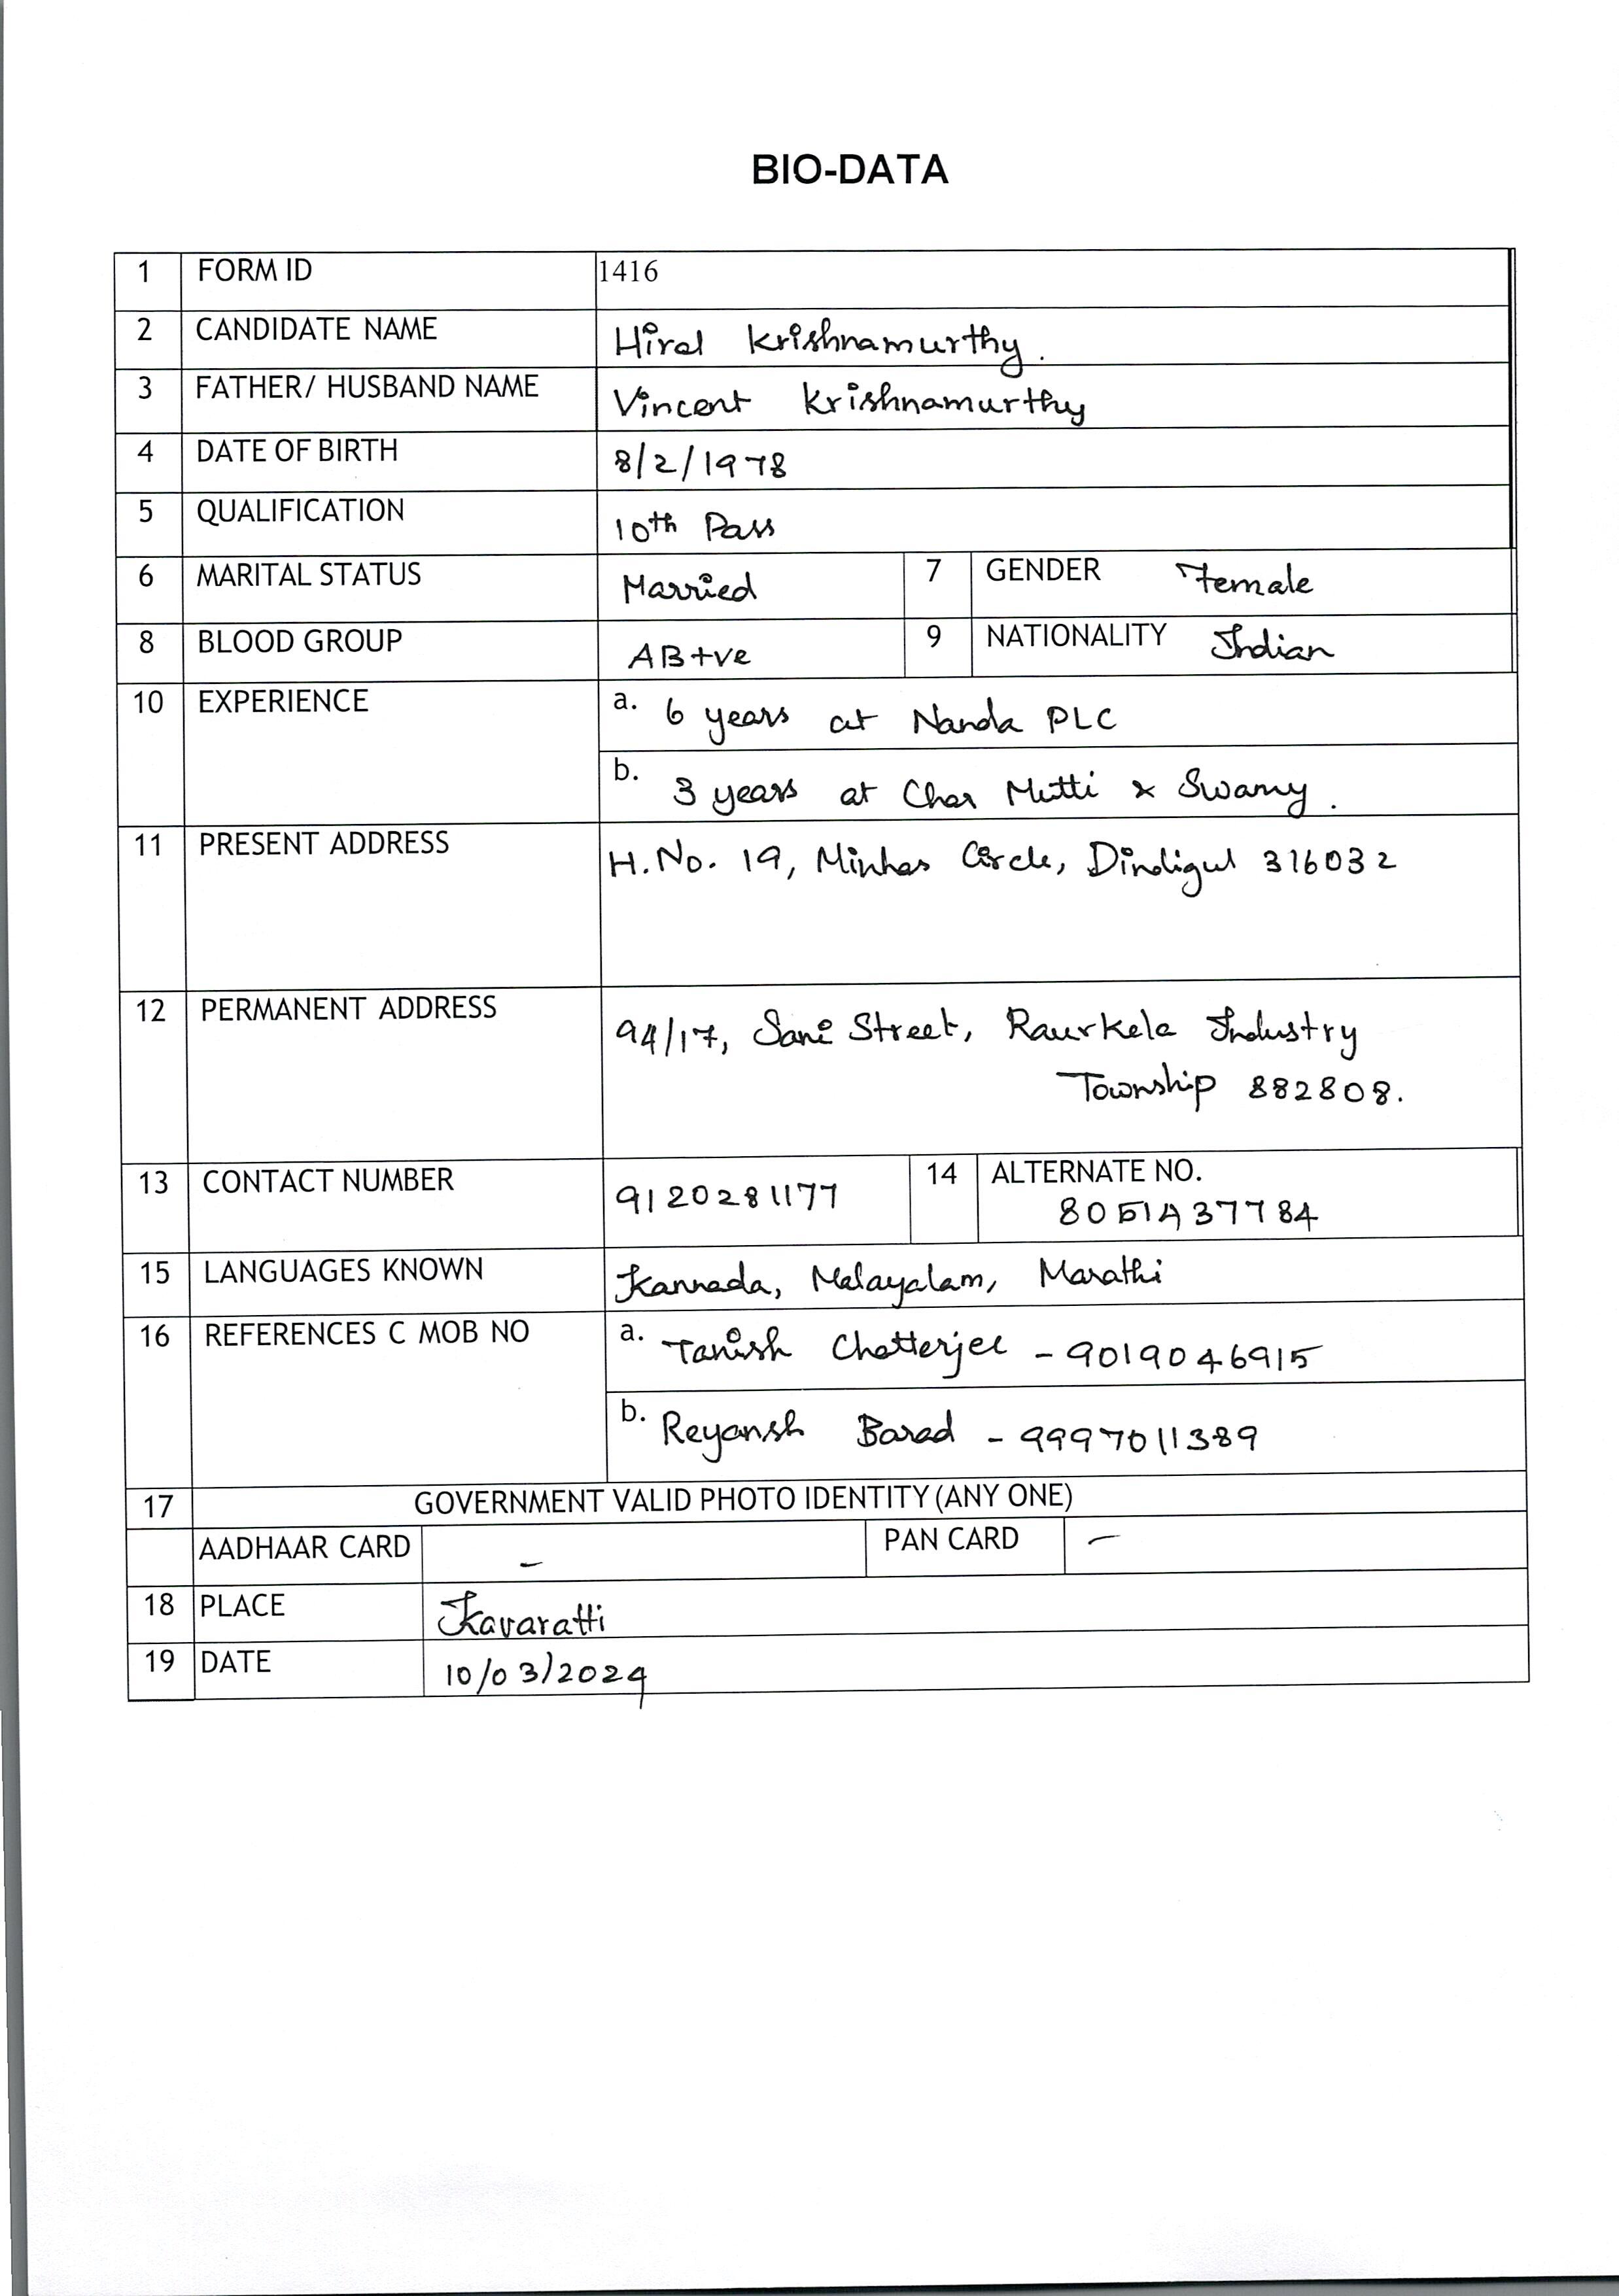 BIO-DATA
1 FORM ID 1416
2 CANDIDATE NAME Hiral Krishnamurthy.
3 FATHER/ HUSBAND NAME Vincent Krishnamurthy
4 DATE OF BIRTH 8/2/1978
5 QUALIFICATION 10th Pass
6 MARITAL STATUS Married 7 GENDER Female
8 BLOOD GROUP AB+ve 9 NATIONALITY Indian
10 EXPERIENCE a. 6 years at Nanda PLC
b. 3 years at Char Mutti & Swamy.
11 PRESENT ADDRESS H.No. 19, Minhas Circle, Dindigul 316032
12 PERMANENT ADDRESS 94/17, Sani Street, Raurkela Industry
Township 882808.
13 CONTACT NUMBER 9120281177 14 ALTERNATE NO.
8051437784
15 LANGUAGES KNOWN Kannada, Malayalam, Marathi
16 REFERENCES C MOB NO a. Tanish Chatterjee - 9019046915
b. Reyansh Barad - 9997011389
17 GOVERNMENT VALID PHOTO IDENTITY (ANY ONE)
AADHAAR CARD - PAN CARD -
18 PLACE Kavaratti
19 DATE 10/03/2024